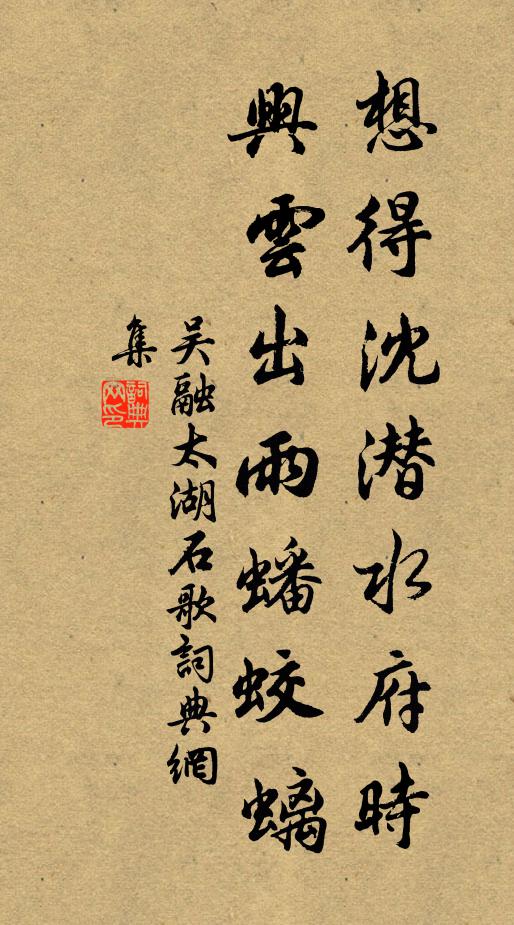 想得沈潜水府時
興雲出雨蟠蛟螭
吴融太湖石歌詞典網
集
詞典網印